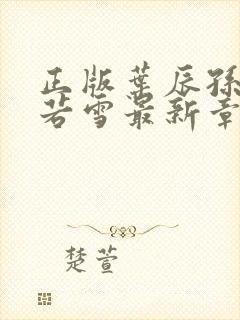 正版叶辰孫
若雪最新章
楚萱